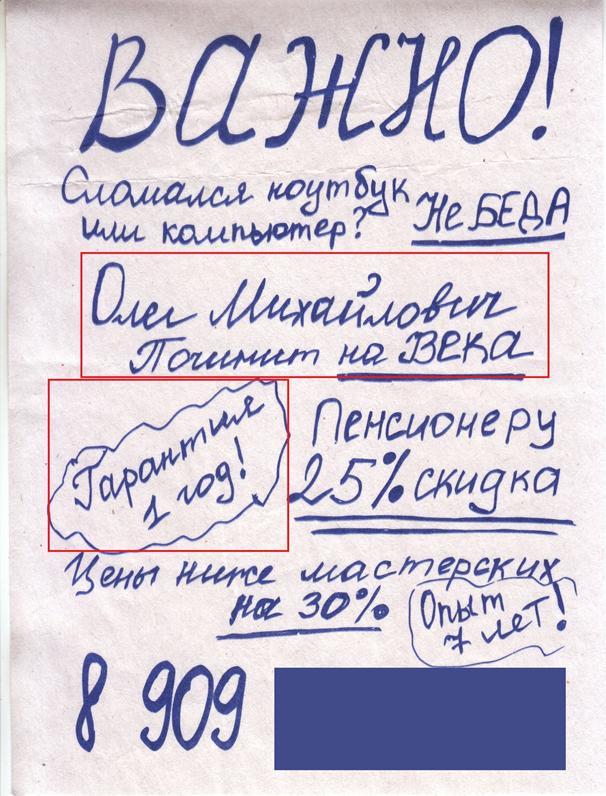 ВАЖНО!
Сломался ноутбук
или компьютер? Не БЕДА
Олег Михайлович
Починит на ВЕКА
Гарантия
1 год!
Пенсионеру
25% скидка
Цены ниже мастерских
на 30%
Опыт
7 лет!
8 909